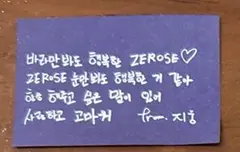 바라만봐도 행복한 ZEROSE♡
ZEROSE 눈만봐도 행복한 거 같아
해주고 싶은 말이 있어
사랑하고 고마워 from. 지웅